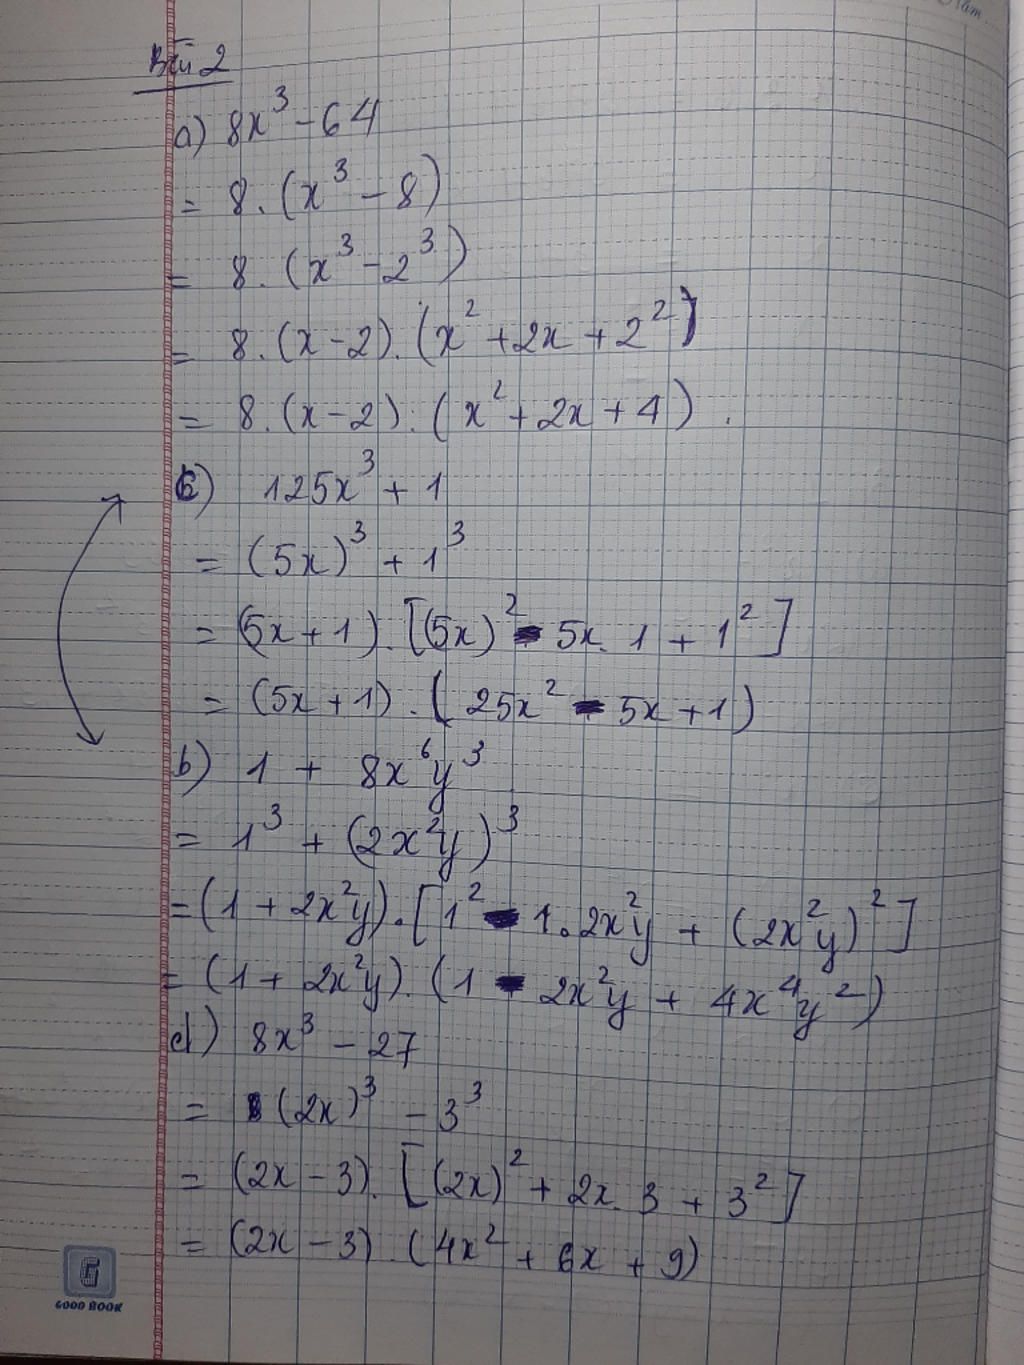 Năm
Bài 2
a) 8x³ - 64
= 8. (x³ - 8)
= 8. (x³ - 2³)
= 8. (x - 2). (x² + 2x + 2²)
= 8. (x - 2). (x² + 2x + 4).
c) 125x³ + 1
= (5x)³ + 1³
= (5x + 1). [(5x)² - 5x. 1 + 1²]
= (5x + 1). (25x² - 5x + 1)
b) 1 + 8x⁶y³
= 1³ + (2x²y)³
= (1 + 2x²y). [1² - 1. 2x²y + (2x²y)²]
= (1 + 2x²y). (1 - 2x²y + 4x⁴y²)
d) 8x³ - 27
= (2x)³ - 3³
= (2x - 3). [(2x)² + 2x. 3 + 3²]
= (2x - 3). (4x² + 6x + 9)
G
GOOD BOOK